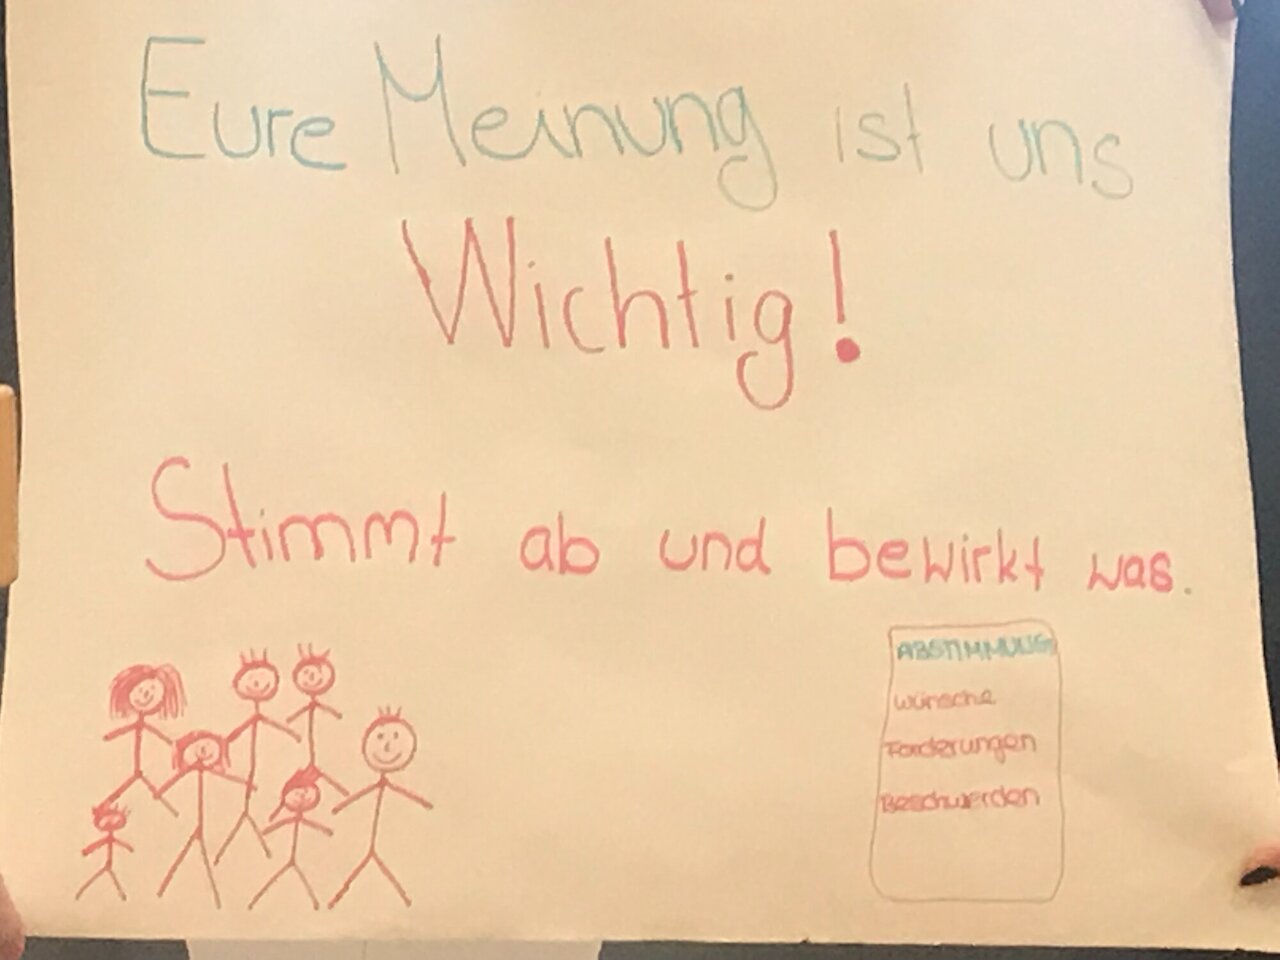 Eure Meinung ist uns
Wichtig!
Stimmt ab und bewirkt was.
ABSTIMMUNG
Wünsche
Forderungen
Beschwerden